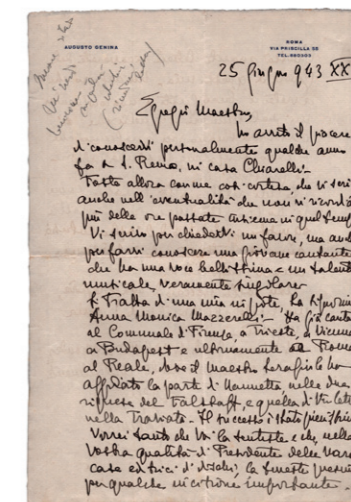 AUGUSTO GENINA
ROMA
VIA PRISCILLA 35
TEL. 860303
25 giugno 943 XXI
Egregio Maestro,
ho avuto il piacere
di conoscervi personalmente qualche anno
fa a S. Remo, in casa Chiarelli.
Foste allora con me così cortese, che vi scrivo
anche nell'eventualità che non vi ricordiate
più delle ore passate assieme in quel tempo.
Vi scrivo per chiedervi un favore, ma anche
per farvi conoscere una giovane cantante
che ha una voce bellissima e un talento
musicale, veramente singolare.
Si tratta d'una mia nipote, la signorina
Anna Monica Mazzerelli. Ha già cantato
al Comunale di Firenze, a Trieste, a Vienna
a Budapest e ultimamente a Roma
al Reale, dove il Maestro Serafin le ha
affidato la parte di Nannetta nelle due
riprese del Falstaff, e quella di Violetta
nella Traviata. Il successo è stato
Vorrei tanto che Voi la sentiste e che, nella
Vostra qualità di Presidente della
casa editrice di dischi, la faceste
per qualche incisione importante.